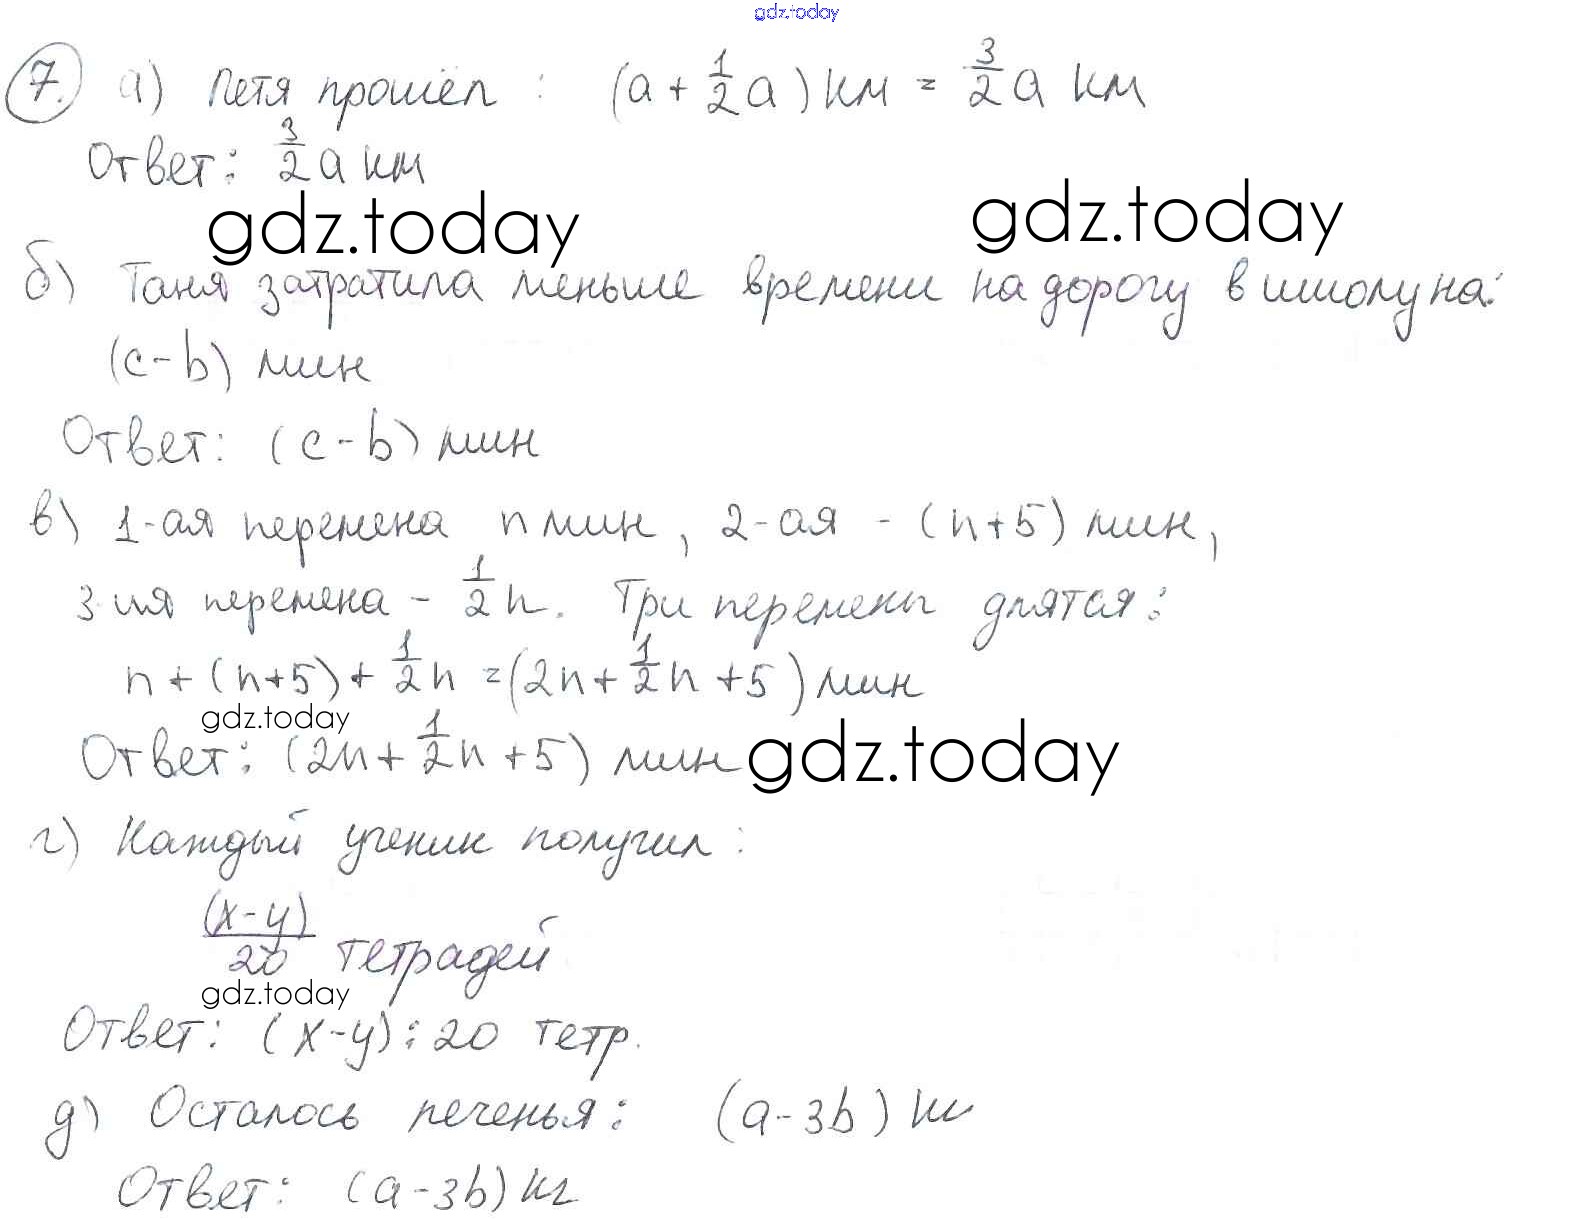 gdz.today
7. а) Петя прошёл : (a + 1/2 a) км = 3/2 a км
Ответ: 3/2 a км
gdz.today gdz.today
б) Таня затратила меньше времени на дорогу в школу на:
(c - b) мин
Ответ: (c - b) мин
в) 1-ая перемена n мин, 2-ая - (n + 5) мин,
3-ия перемена - 1/2 n. Три перемены длятся:
n + (n + 5) + 1/2 n = (2n + 1/2 n + 5) мин
gdz.today
Ответ: (2n + 1/2 n + 5) мин
gdz.today
г) Каждый ученик получил:
(x - y)/20 тетрадей
gdz.today
Ответ: (x - y) : 20 тетр.
д) Осталось печенья: (a - 3b) кг
Ответ: (a - 3b) кг